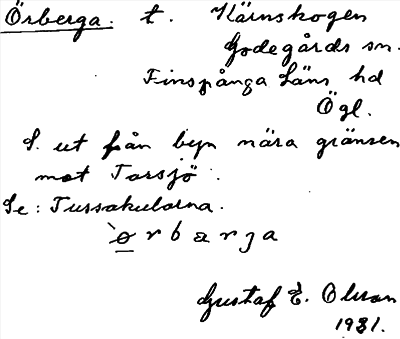 Örberga. t. Kärnskogen
Godegårds sn.
Finspånga Läns hd
Ögl.
S. ut från byn nära gränsen
mot Torsjö.
Se: Tussakularna.
`ørbarja
Gustaf E. Olsson
1931.